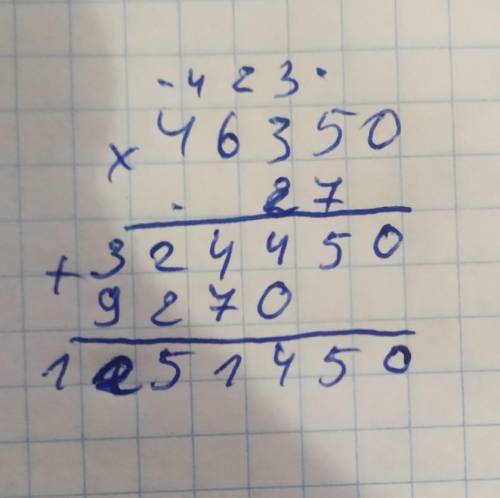 · 4 2 3 ·
× 46350
· 27
+ 324450
9270
1251450